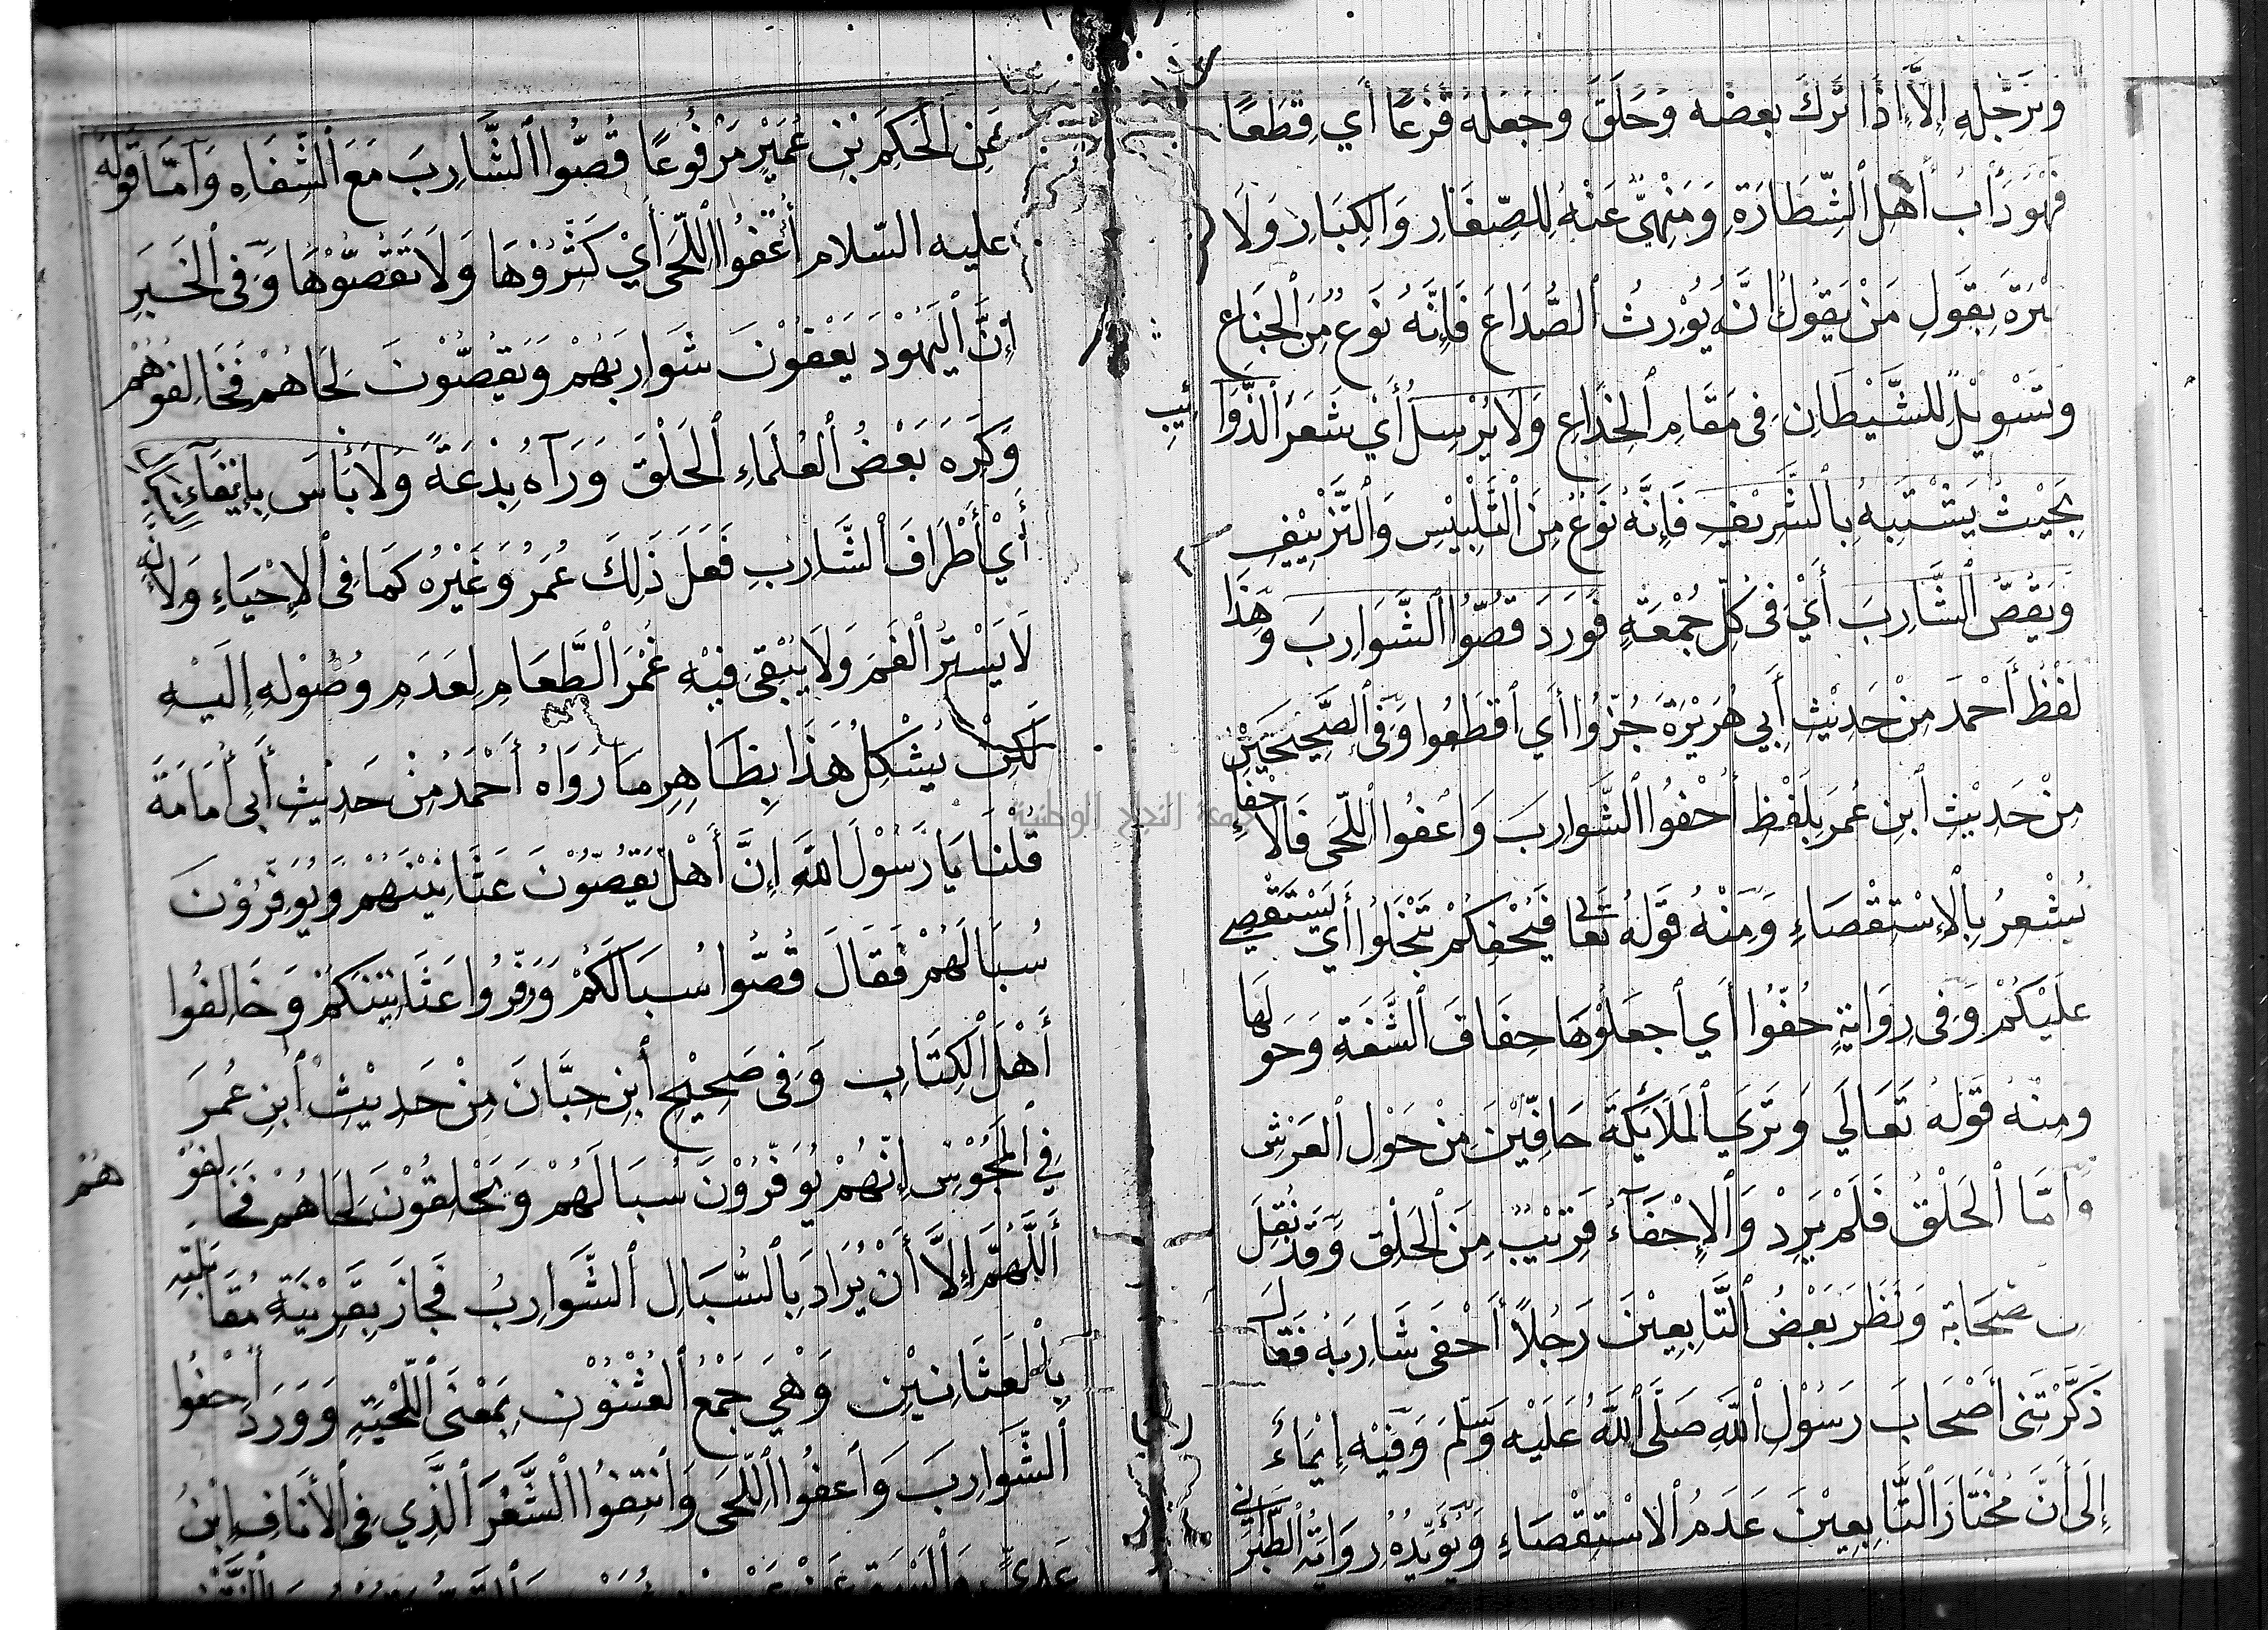 وترجله إلا إذا ترك بعضه وحلق وجعله قزعا أي قطعا
فَهُوَ دَأبُ أَهْلِ الشَّطَارَةِ وَمَنْهِيٌّ عَنْهُ لِلصِّغَارِ وَالكِبَارِ وَلَا
عبْرَةَ بِقَولِ مَنْ يَقُولُ إنَّهُ يُوْرِثُ الصُّدَاعَ فَإِنَّهُ نَوعٌ مِنَ الجِنَاعِ
وَتَسْوِيْلٌ لِلشَّيْطَانِ فِى مَقَامِ الخِدَاعِ وَلَا يُرْسِلُ أَيْ شَعَرَ الذَّوَائِبِ
بِحَيْثُ يَشْتَبِهُ بِالشَّرِيْفِ فَإِنَّهُ نَوْعٌ مِنَ التَّلْبِيْسِ وَالتَّزْيِيْفِ
وَيَقُصُّ الشَّارِبَ أَيْ فِى كُلِّ جُمْعَةٍ فَوَرَدَ قُصُّوا الشَّوَارِبَ وَهَذَا
لَفْظُ أَحْمَدَ مِنْ حَدِيْثِ أَبِي هُرَيْرَةَ جُزُّوا أَي اقطَعُوا وَفِى الصَّحِيْحَيْنِ
مِنْ حَدِيْثِ ابنِ عُمَرَ بِلَفْظِ أَحْفُوا الشَّوَارِبَ وَاعْفُوا اللِّحَى فَالاحْفَاءُ
يُشْعِرُ بِالإسْتِقْصَاءِ وَمِنْهُ قَولُهُ تَعَالى فَيُحْفِكُمْ تَبْخَلُوا أَيْ يَسْتَقْصِي
عَلَيْكُمْ وَفِى رِوَايَةٍ حُفُّوا أَي اجعَلُوْهَا حِفَافَ الشَّفَةِ وَحَولَهَا
وَمِنْهُ قَولُهُ تَعَالَي وَتَرَي المَلَائِكَةَ حَافِّيْنَ مِنْ حَوْلِ العَرْشِ
وَأمَّا الحَلْقُ فَلَمْ يَرِدْ وَالإِحْفَآءُ قَرِيْبٌ مِنَ الحَلْقِ وَقَدْ نُقِلَ
صحَابَة وَنَظَرَ بَعْضُ التَّابِعِيْنَ رَجُلاً أَحْفَى شَارِبَهُ فَقَال
ذَكَّرْتَنِى أَصْحَابَ رَسُوْلِ اللَّهِ صَلَّى اللَّهُ عَلَيْهِ وَسَلَّمَ وَفِيْهِ إِيْمَاءٌ
إِلَى أَنَّ مُخْتَارَ التَّابِعِيْنَ عَدَمُ الاسْتِقْصَاءِ وَيُؤَيِّدُهُ رِوَايَةُ الطَّبَرَانِي
عَنِ الحَكَمِ بْنِ عُمَيْرٍ مَرْفُوعًا قُصُّوا الشَّارِبَ مَعَ الشِّفَاهِ وَأمَّا قَولُهُ
عليه السّلام أَعْفُوا اللِّحَى أَيْ كَثِّرُوْهَا وَلَا تَقُصُّوْهَا وَفِى الخَبَرِ
إنَّ اليَهُوْدَ يَعْفُوْنَ شَوَارِبَهُمْ وَيَقُصُّوْنَ لِحَاهُمْ فَخَالِفُوْهُمْ
وَكَرِهَ بَعْضُ العُلَمَاءِ الحَلْقَ وَرَآهُ بِدْعَةً وَلَا بَأسَ بِإبقَاءِ
أَيْ أَطْرَافَ الشَّارِبِ فَعَلَ ذَلِكَ عُمَرُ وَغَيْرُهُ كَمَا فِى الإحْيَاءِ وَلأنَّه
لَا يَسْتُرُ الفَمَ وَلَا يَبْقَى فِيْهِ غَمْرُ الطَّعَامِ لِعَدَمِ وُصُوْلِهِ إِلَيْهِ
لَكِنْ يُشْكِلُ هَذَا بِظَاهِرِ مَا رَوَاهُ أَحْمَدُ مِنْ حَدِيْثِ أَبى أُمَامَةَ
قُلْنَا يَا رَسُوْلَ اللَّهِ إِنَّ أَهْلَ يَقُصُّوْنَ عَثَانِيْنَهُمْ وَيُوَفِّرُوْنَ
سُبَالَهُمْ فَقَالَ قُصُّوا سُبَالَكُمْ وَوَفِّرُوا عَثَانِيْنَكُمْ وَخَالِفُوا
أَهْلَ الكِتَابِ وَفِى صَحِيْحِ ابنِ حِبَّانَ مِنْ حَدِيْثِ ابنِ عُمَرَ
فِي المَجُوْسِ إِنَّهُمْ يُوَفِّرُوْنَ سُبَالَهُمْ وَيَحْلِقُوْنَ لِحَاهُمْ فَخَالِفُوْهُمْ
أَللَّهُمَّ إِلَّا أَنْ يُرَادَ بِالسُّبَالِ الشَّوَارِبُ فَجَازَ بِقَرِيْنَةِ مُقَابَلَتِهِ
بِالعَثَانِيْنِ وَهْيَ جَمْعُ العُثْنُوْنِ بِمَعْنَى اللِّحْيَةِ وَوَرَدَ أَحْفُوا
الشَّوَارِبَ وَاعفُوا اللِّحَى وَانتِفُوا الشَّعْرَ الَّذِي فِى الأنَافِ ابنُ
جامعة النجاح الوطنية